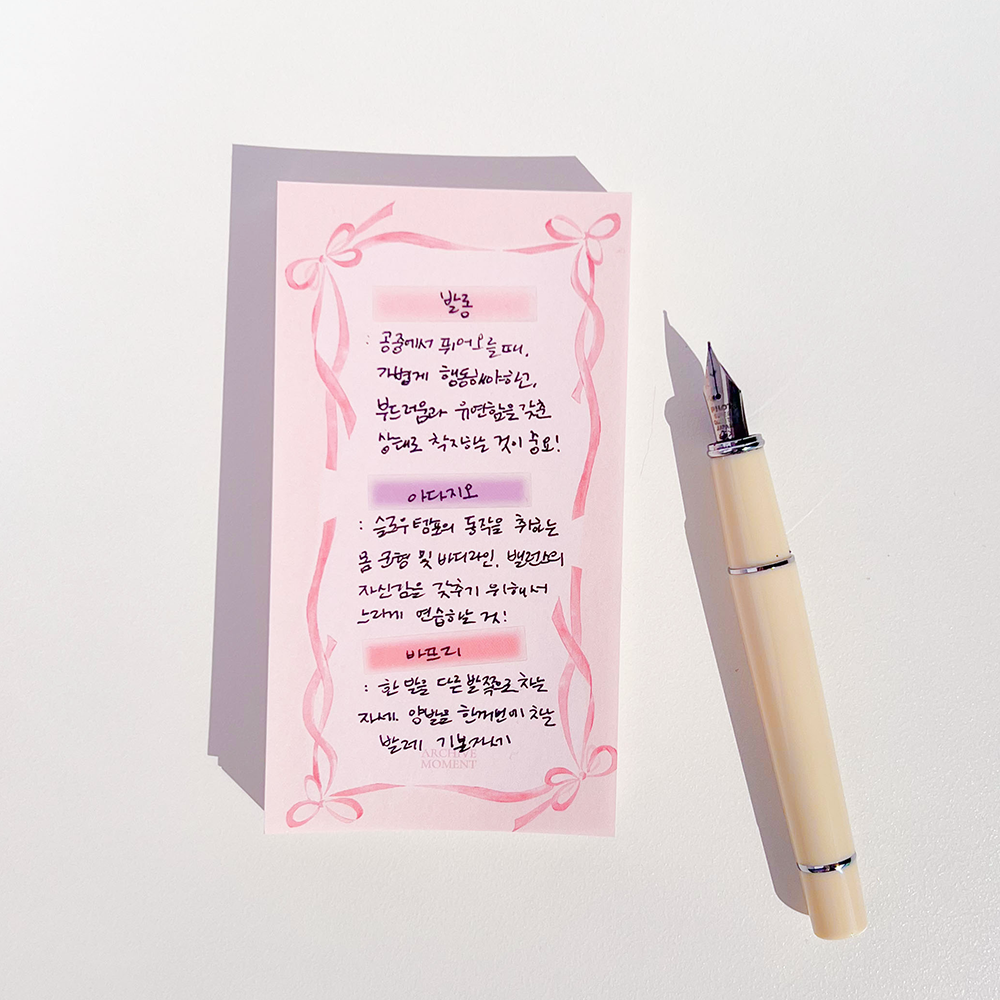 발롱
: 공중에서 뛰어오를때,
가볍게 행동해야하고,
부드러움과 유연함을 갖춘
상태로 착장하는 것이 중요!
아다지오
: 슬로우템포의 동작을 취하는
몸 균형 및 바디라인, 밸런스의
자신감을 갖추기 위해서
느리게 연습하는 것!
바뜨리
: 한 발을 다른발쪽으로 차는
자세. 양발을 한꺼번에 차는
발레 기본자세
ARCHIVE
MOMENT